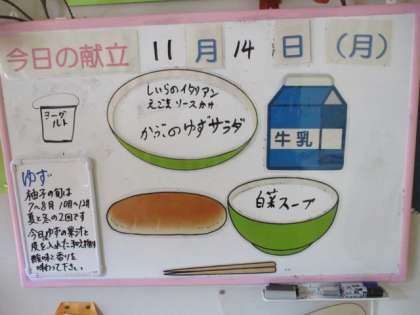 今日の献立 11月14日(月)
ヨーグルト
しいらのイタリアン
えごまソースかけ
かぶのゆずサラダ
牛乳
白菜スープ
ゆず
柚子の旬は
7〜8月 10月〜12月
夏と冬の2回です
今日ゆずの果汁と
皮を入れた和え物
酸味と香りを
味わって下さい